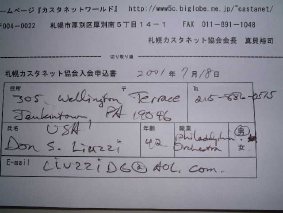 ームページ『カスタネットワールド』 http://www5c.biglobe.ne.jp/~castanet/
006-0022 札幌市厚別区厚別南5丁目14-1 FAX 011-891-1048
札幌カスタネット協会会長 真貝裕司
切り取り線
札幌カスタネット協会入会申込書 2001年 7月18日
住所 305 Wellington Terrace Tel 215-886-0575
Jenkintown, PA 19046
USA
氏名 Don S. Liuzzi 年齢 42 職業 Philadelphia Orchestra 男・女
E-mail LIUZZI DG@AOL.com.